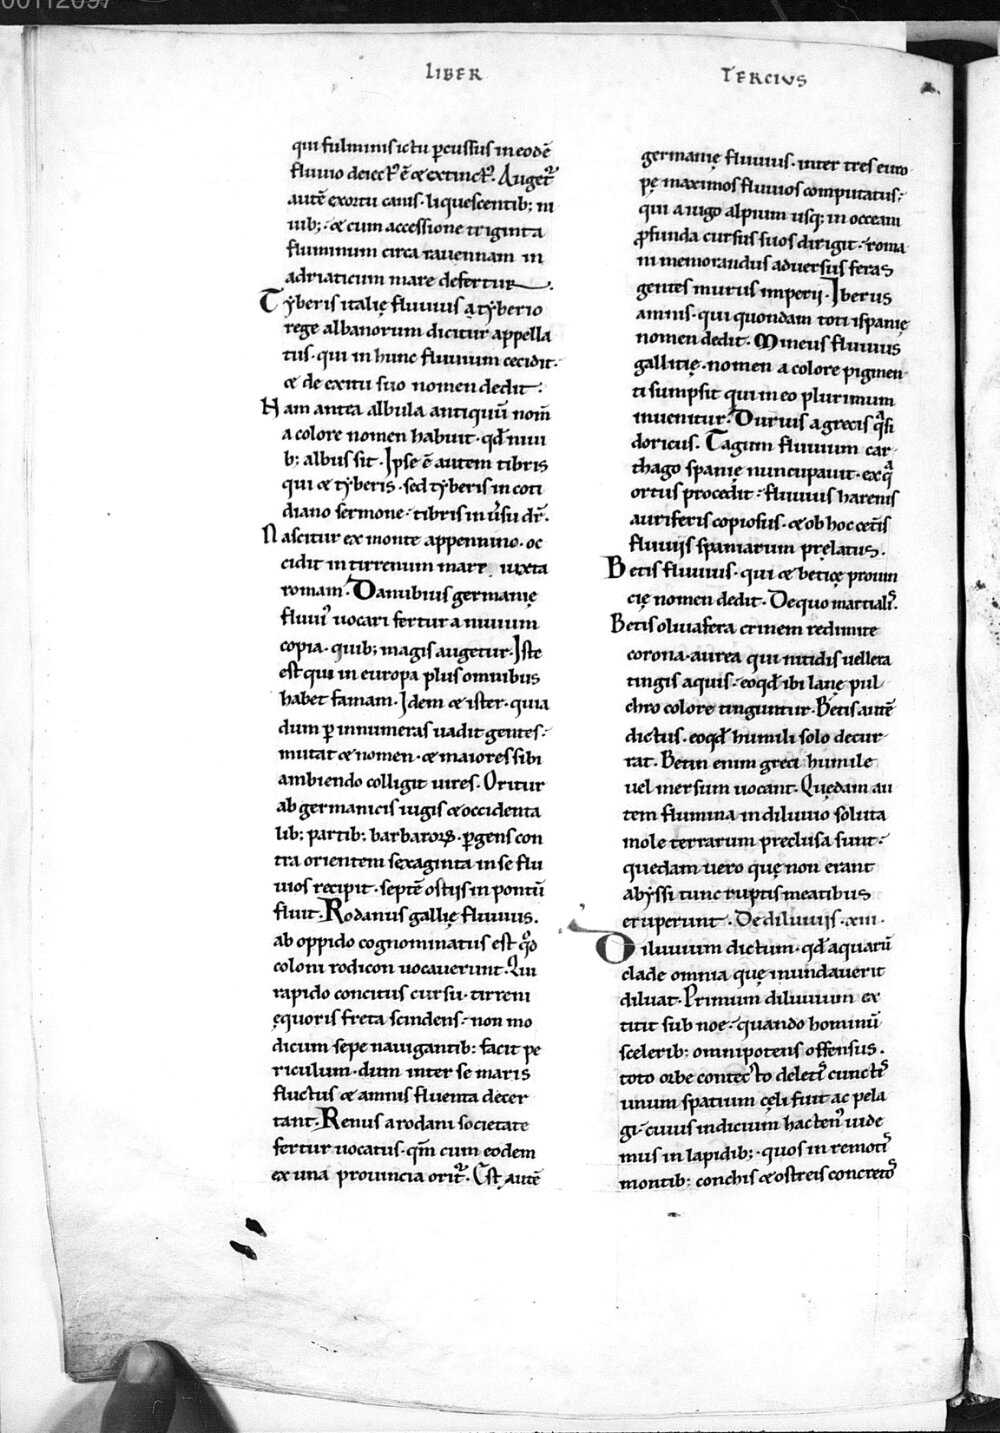 00112097
LIBER
TERCIUS
qui fulminis ictu ꝑcussus in eodē
fluuio deiect᷒ ē & extinct᷒. Auget᷑
autē exortu canis. liquescentib; ni
uib; & cum accessione triginta
fluminum circa rauennam in
adriaticum mare defertur.
Tyberis italię fluuius a tyberio
rege albanorum dicitur appella
tus. qui in hunc fluuium cecidit.
& de exitu suo nomen dedit.
Nam antea albula antiquū nom̄
a colore nomen habuit. qđ niui
b; albus sit. Ipse ē autem tibris
qui & tyberis. sed tyberis in coti
diano sermone. tibris in u̾su dr̄.
Nascitur ex monte appennino. oc
cidit in tirrenum mare iuxta
romam. Danubius germanię
fluui᷒ uocari fertur a niuium
copia. quib; magis augetur. Iste
est qui in europa plus omnibus
habet famam. Idem & ister. quia
dum ꝑ innumeras uadit gentes.
mutat & nomen. & maiores sibi
ambiendo colligit uires. Oritur
ab germanicis iugis & occidenta
lib; partib; barbaroꝝ. ꝑgens con
tra orientem sexaginta in se flu
uios recipit. septē ostijs in pontū
fluit. Rodanus gallię fluuius.
ab oppido cognominatus est qͦd
coloni rodicon uocauerunt. Qui
rapido concitus cursu. tirreni
ęquoris freta scindens. non mo
dicum sepe nauigantib: facit pe
riculum. dum inter se maris
fluctus & amnis fluenta decer
tant. Renus a rodani societate
fertur uocatus. qm̄ cum eodem
ex una prouincia orit᷑. Est autē
germanię fluuius. inter tres euro
pę maximos fluuios computatus.
qui a iugo alpium usq; in oceani
ꝓfunda cursus suos dirigit. roma
ni memorandus aduersus feras
gentes murus imperij. Iberus
amnis. qui quondam toti ispanię
nomen dedit. Mineus fluuius
gallitię. nomen a colore pigmen
ti sumpsit qui in eo plurimum
inuenitur. Durius a grecis qͣsi
doricus. Tagum fluuium car
thago spanię nuncupauit. ex qͣ
ortus procedit. fluuius harenis
auriferis copiosus. & ob hoc cet̄is
fluuijs spaniarum prelatus.
Betis fluuius. qui & beticę prouin
cię nomen dedit. De quo martial᷒.
Betis oliuafera crinem redimite
corona. aurea qui nitidis uellera
tingis aquis. eo qđ ibi lanę pul
chro colore tinguntur. Betis autē
dictus. eo qđ humili solo decur
rat. Betin enim greci humile
uel mersum uocant. Quędam au
tem flumina in diluuio soluta
mole terrarum preclusa sunt.
quedam uero que non erant
abyssi tunc ruptis meatibus
eruperunt. De diluuijs .xiii.
Diluuium dictum. qđ aquarū
clade omnia quę inundauerit
diluat. Primum diluuium ex
titit sub noe. quando hominū
scelerib: omnipotens offensus.
toto orbe contecto deleti᷒ cuncti᷒
unum spatium cęli fuit ac pela
gi. cuius indicium hacten᷒ uide
mus in lapidib;. quos in remoti᷒
montib: conchis & ostreis concreto᷒